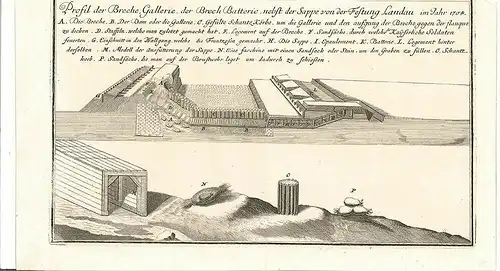 Profil der Breche, Gallerie, der Brech Batterie, nebst der Sappe von der Festung Landau im Jahr 1704.
A. Die Breche. B. Der Dam oder die Gallerie. C. Gefülte Schantz Körbe, um die Gallerie und den aufgang der Breche gegen der flanque
zu decken. D. Staffeln welche man zuletzt gemacht hat. E. Logement auf der Breche. F. Sandsäcke, durch welche Kaÿserliche Soldaten
feuerten. G. Einschnitt in den Wallgang, welche die Frantzosen gemacht. H. Die Sappe. I. Epaulement. K. Batterie. L. Logement hinter
derselben. M. Modell der einfassung der Sappe. N. Eine faschine mit einem Sandsack oder Stein, um den Graben zu füllen. O. Schantz-
korb. P. Sandsäcke, die man auf der Brustwehr leget um dadurch zu schiessen.
N
O
P